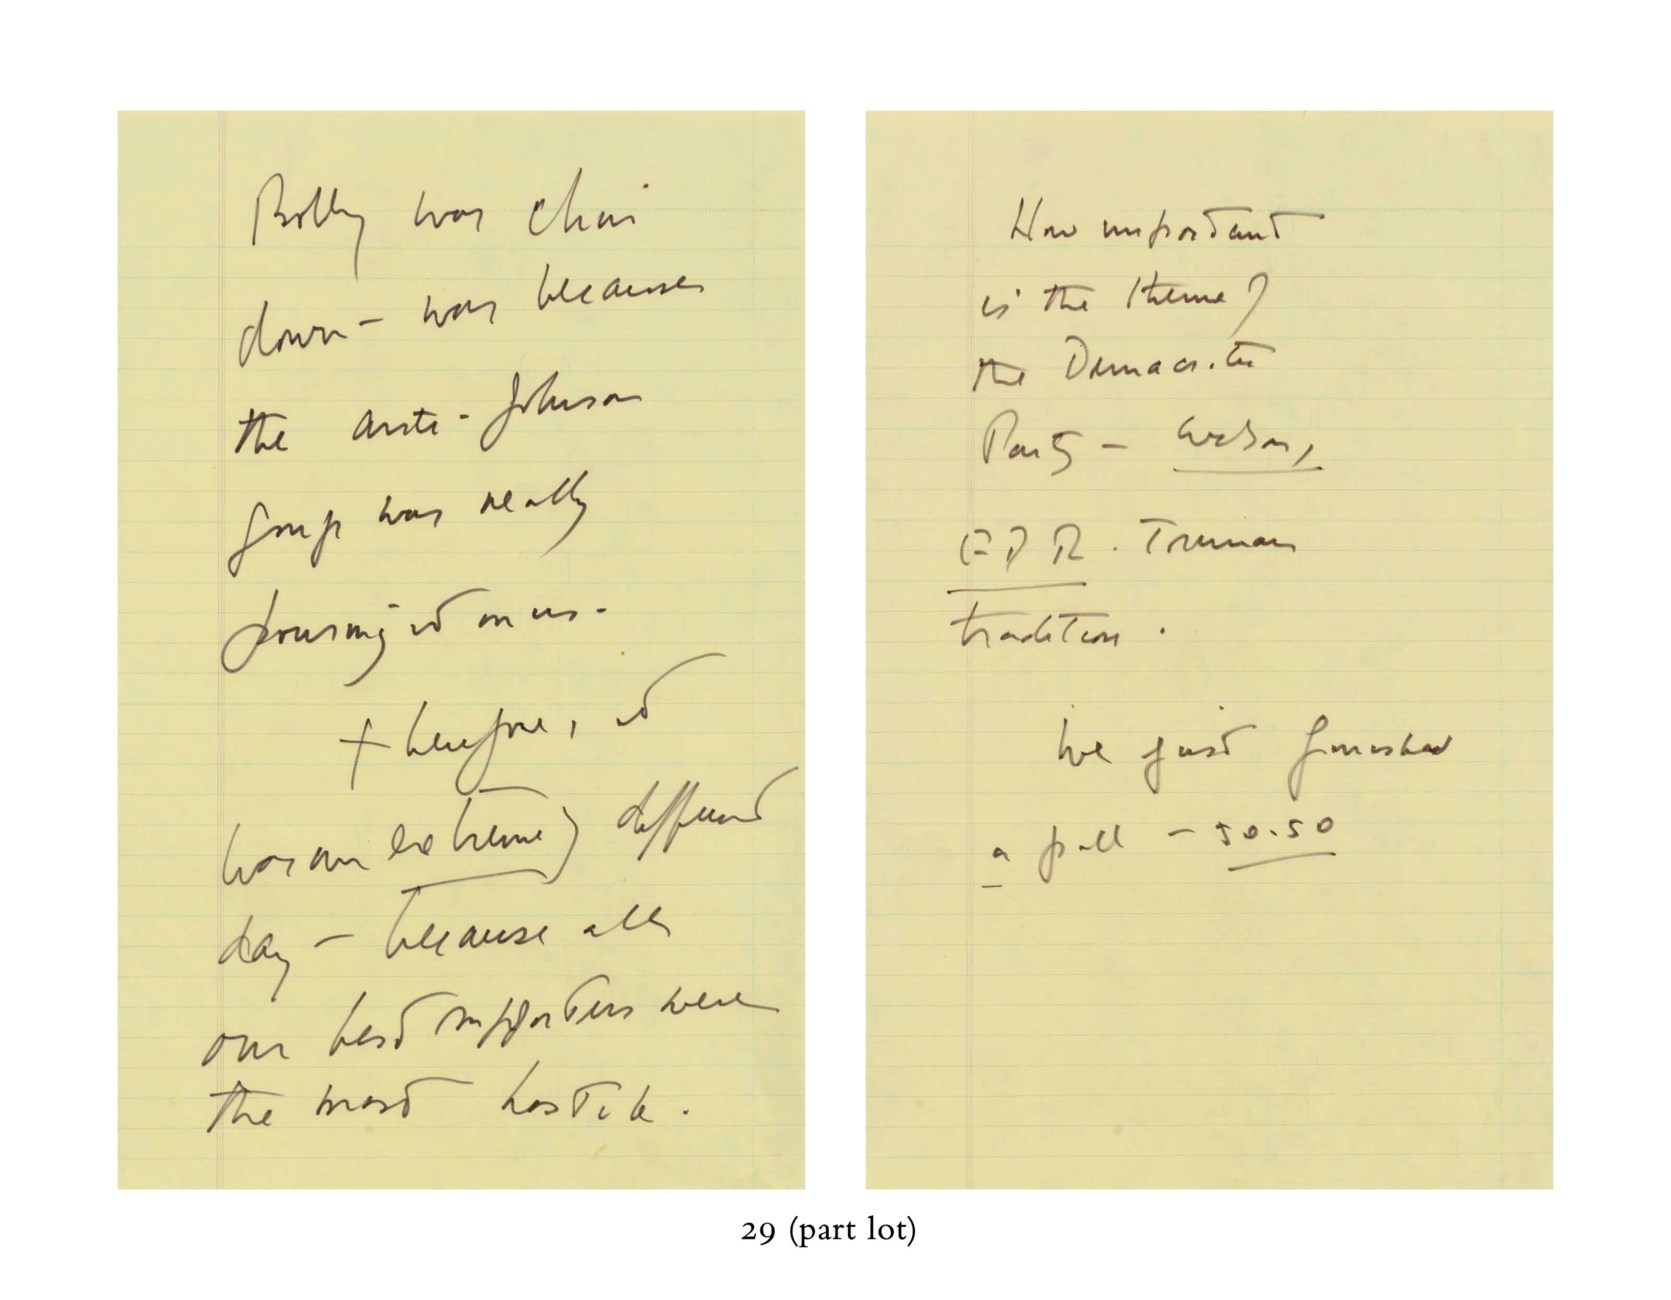 Bobby was chair
down — was because
the anti-Johnson
group was really
pouring it on us.
+ therefore, it
was an extremely different
day — because all
our best supporters were
the most hostile.
How important
is the theme?
the Democratic
Party — Wilson,
FDR. Truman
tradition.
We just finished
a poll — 50.50
29 (part lot)